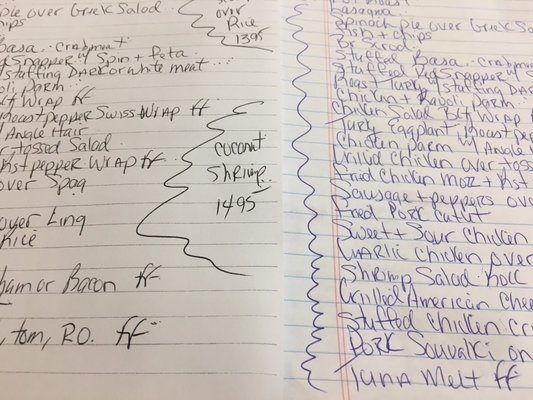 ple over Griek Salad
hips
Basa.. crabmeat
g Snapper w/ Spin + feta
stuffing DARK or white meat...
oli parm..
Blt Wrap ff
Roast pepper Swiss Wrap ff
Angle Hair
r tossed Salad
Rst pepper Wrap ff..
over Spag
over Ling
Rice
ham or Bacon ff
, tom, R.O. ff
over
Rice
1395
coconut
Shrimp..
1495
Lasagna
Spinach pie over Griek Sala
Fish + chips
Br Scrod..
Stuffed Basa.. Crabmea
Stuffed Rd Snapper w/ S
Roast Turky w/ Stuffing DAR
Chicken + Ravoli parm..
Chicken Salad Blt Wrap
Turky Eggplant, Roast pep
Chicken parm w/ Angle H
Grilled Chicken over toss
Fried Chicken Mozz + Rst
Sausage + peppers ove
Fried Pork Cutlt
Sweet + Sour Chicken
GARlic Chicken over
Shrimp Salad Roll
Grilled American Chee
Stuffed Chicken
PORK Souvalki on
Tuna Melt ff